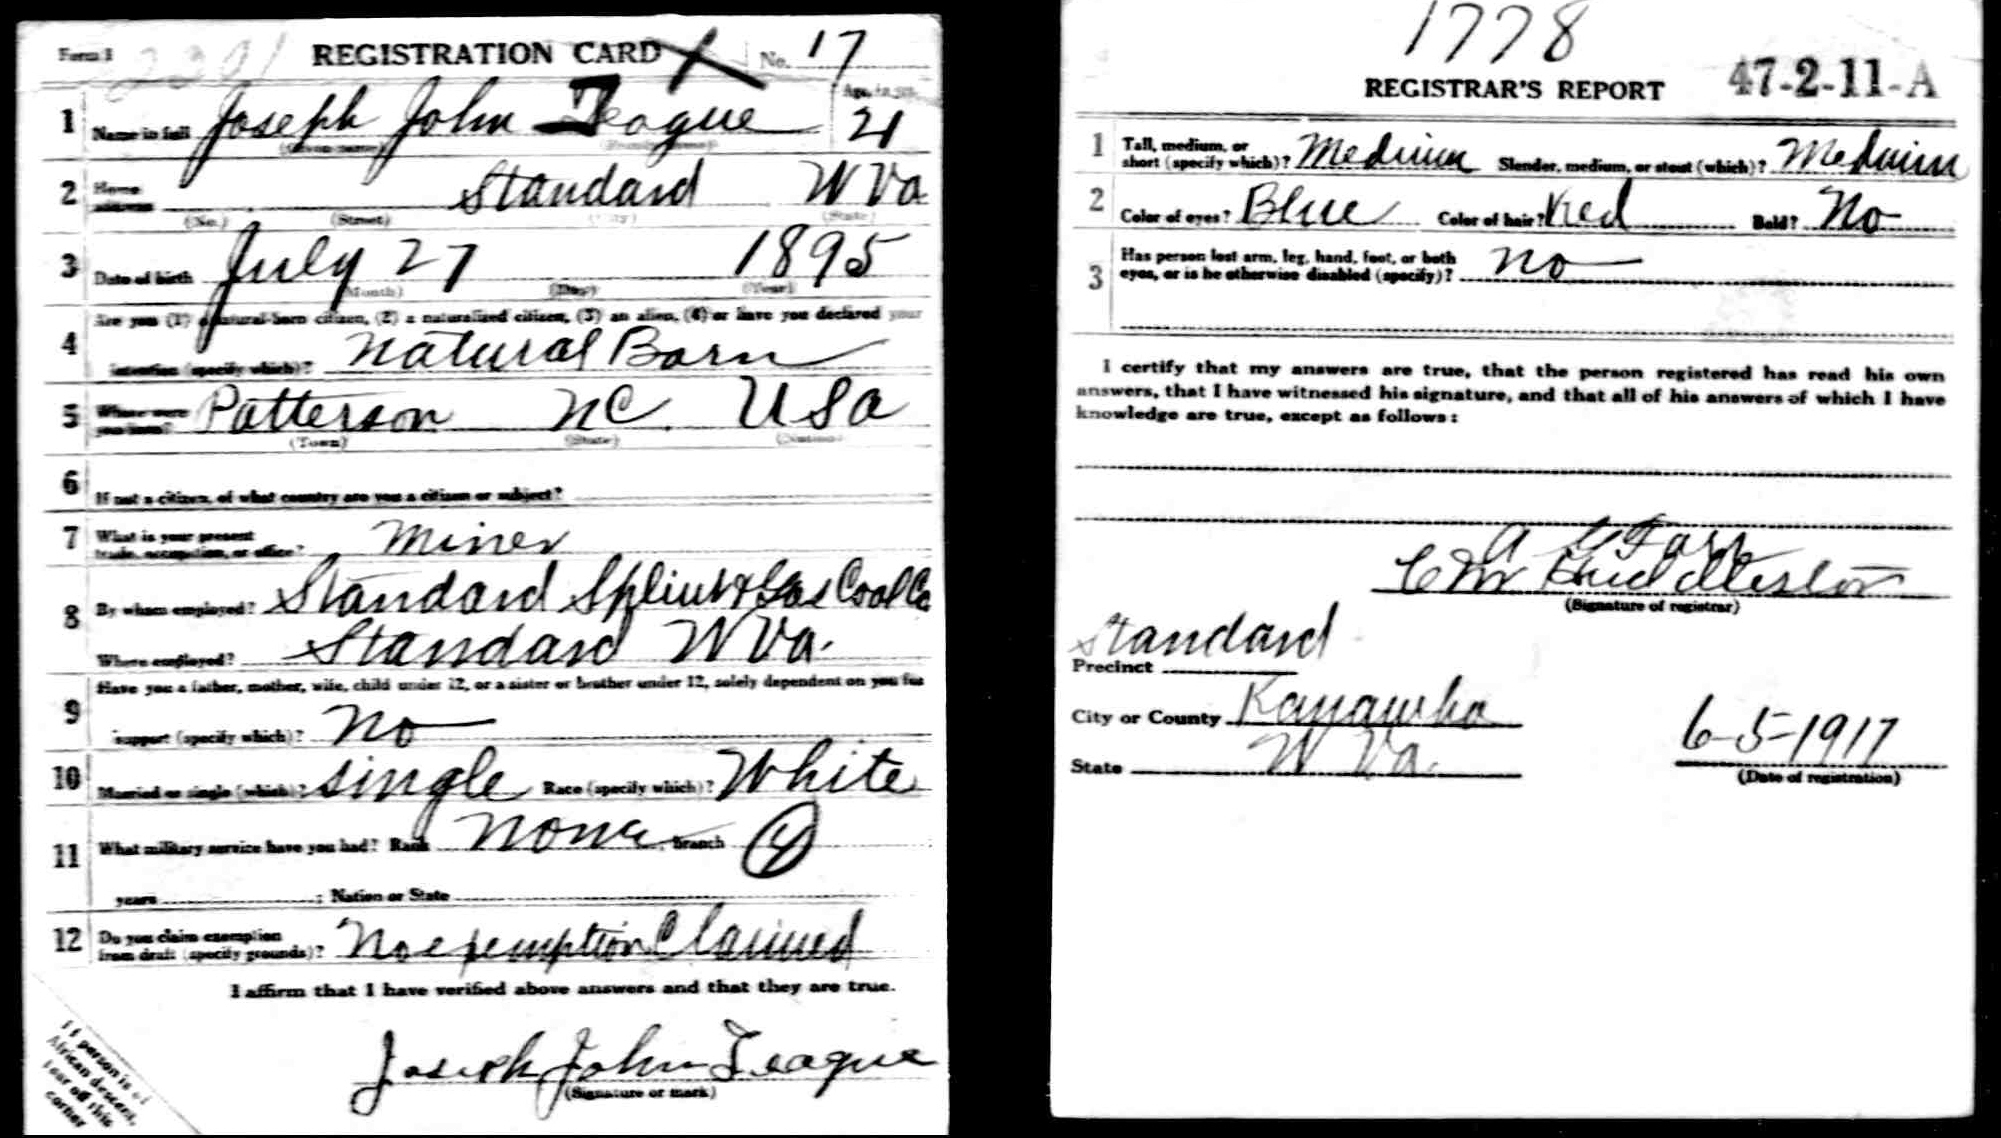 Form 1 REGISTRATION CARD No. 17
Age, in yrs.
1 Name in full Joseph John Teague 21
(Given name) (Family name)
2 Home address Standard W Va
(No.) (Street) (City) (State)
3 Date of birth July 27 1895
(Month) (Day) (Year)
Are you (1) a natural-born citizen, (2) a naturalized citizen, (3) an alien, (4) or have you declared your
4 intention (specify which)? Natural Born
5 Where were you born? Patterson NC USa
(Town) (State) (Nation)
6 If not a citizen, of what country are you a citizen or subject?
7 What is your present trade, occupation, or office? Miner
8 By whom employed? Standard Splint & Gas Coal Co
Where employed? Standard W Va.
Have you a father, mother, wife, child under 12, or a sister or brother under 12, solely dependent on you for
9 support (specify which)? No
10 Married or single (which)? single Race (specify which)? White
11 What military service have you had? Rank None, branch
years ; Nation or State
12 Do you claim exemption from draft (specify grounds)? No exemption Claimed
I affirm that I have verified above answers and that they are true.
Joseph John Teague
(Signature or mark)
If person is of
African descent,
tear off this
corner
1778
REGISTRAR'S REPORT 47-2-11-A
1 Tall, medium, or
short (specify which)? Medium Slender, medium, or stout (which)? Medium
2 Color of eyes? Blue Color of hair? Red Bald? No
Has person lost arm, leg, hand, foot, or both
3 eyes, or is he otherwise disabled (specify)? No
I certify that my answers are true, that the person registered has read his own
answers, that I have witnessed his signature, and that all of his answers of which I have
knowledge are true, except as follows:
(Signature of registrar)
Standard
Precinct
City or County Kanawha
6-5-1917
State W Va.
(Date of registration)